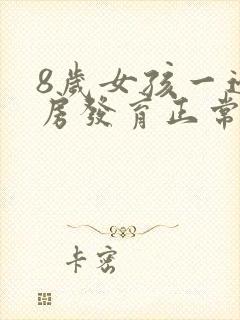 8歲女孩一边
房發育正常
卡密